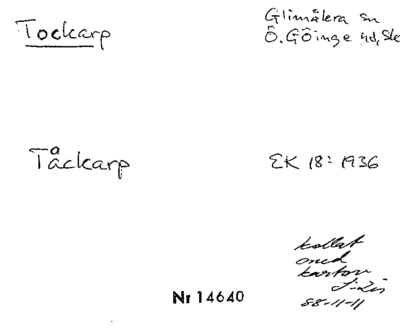 Tockarp
Glimåkra sn
Ö. Göinge hd, Sk
Tåckarp
EK 18: 1936
kollat
med
karton
Nr 14640
88-11-11